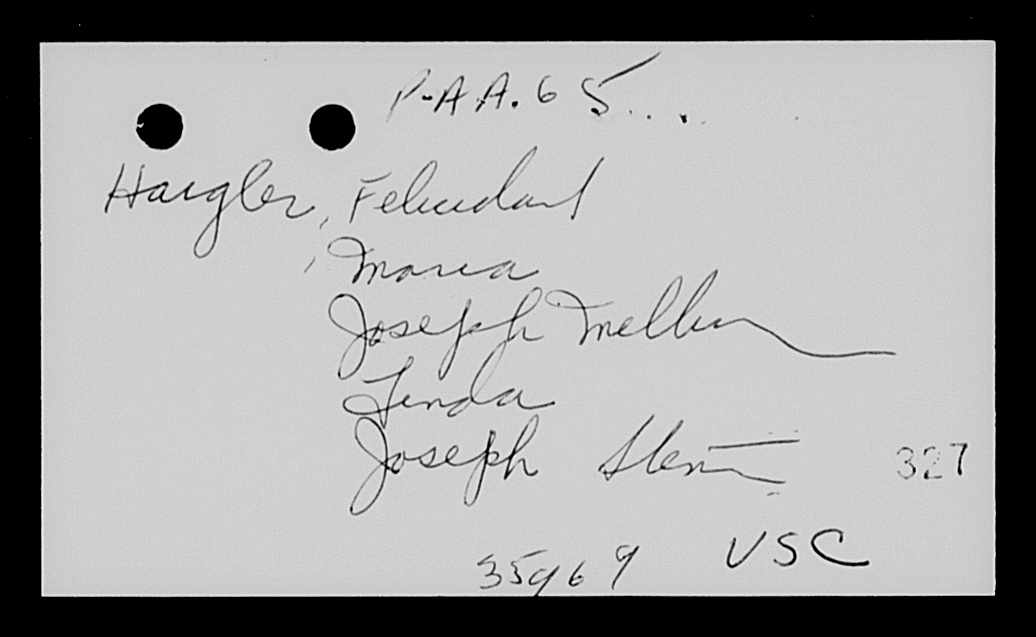 P-A.A. 65...
Haigler, Felicidad
, Maria
Joseph Melln
Linda
Joseph
327
35969 USC